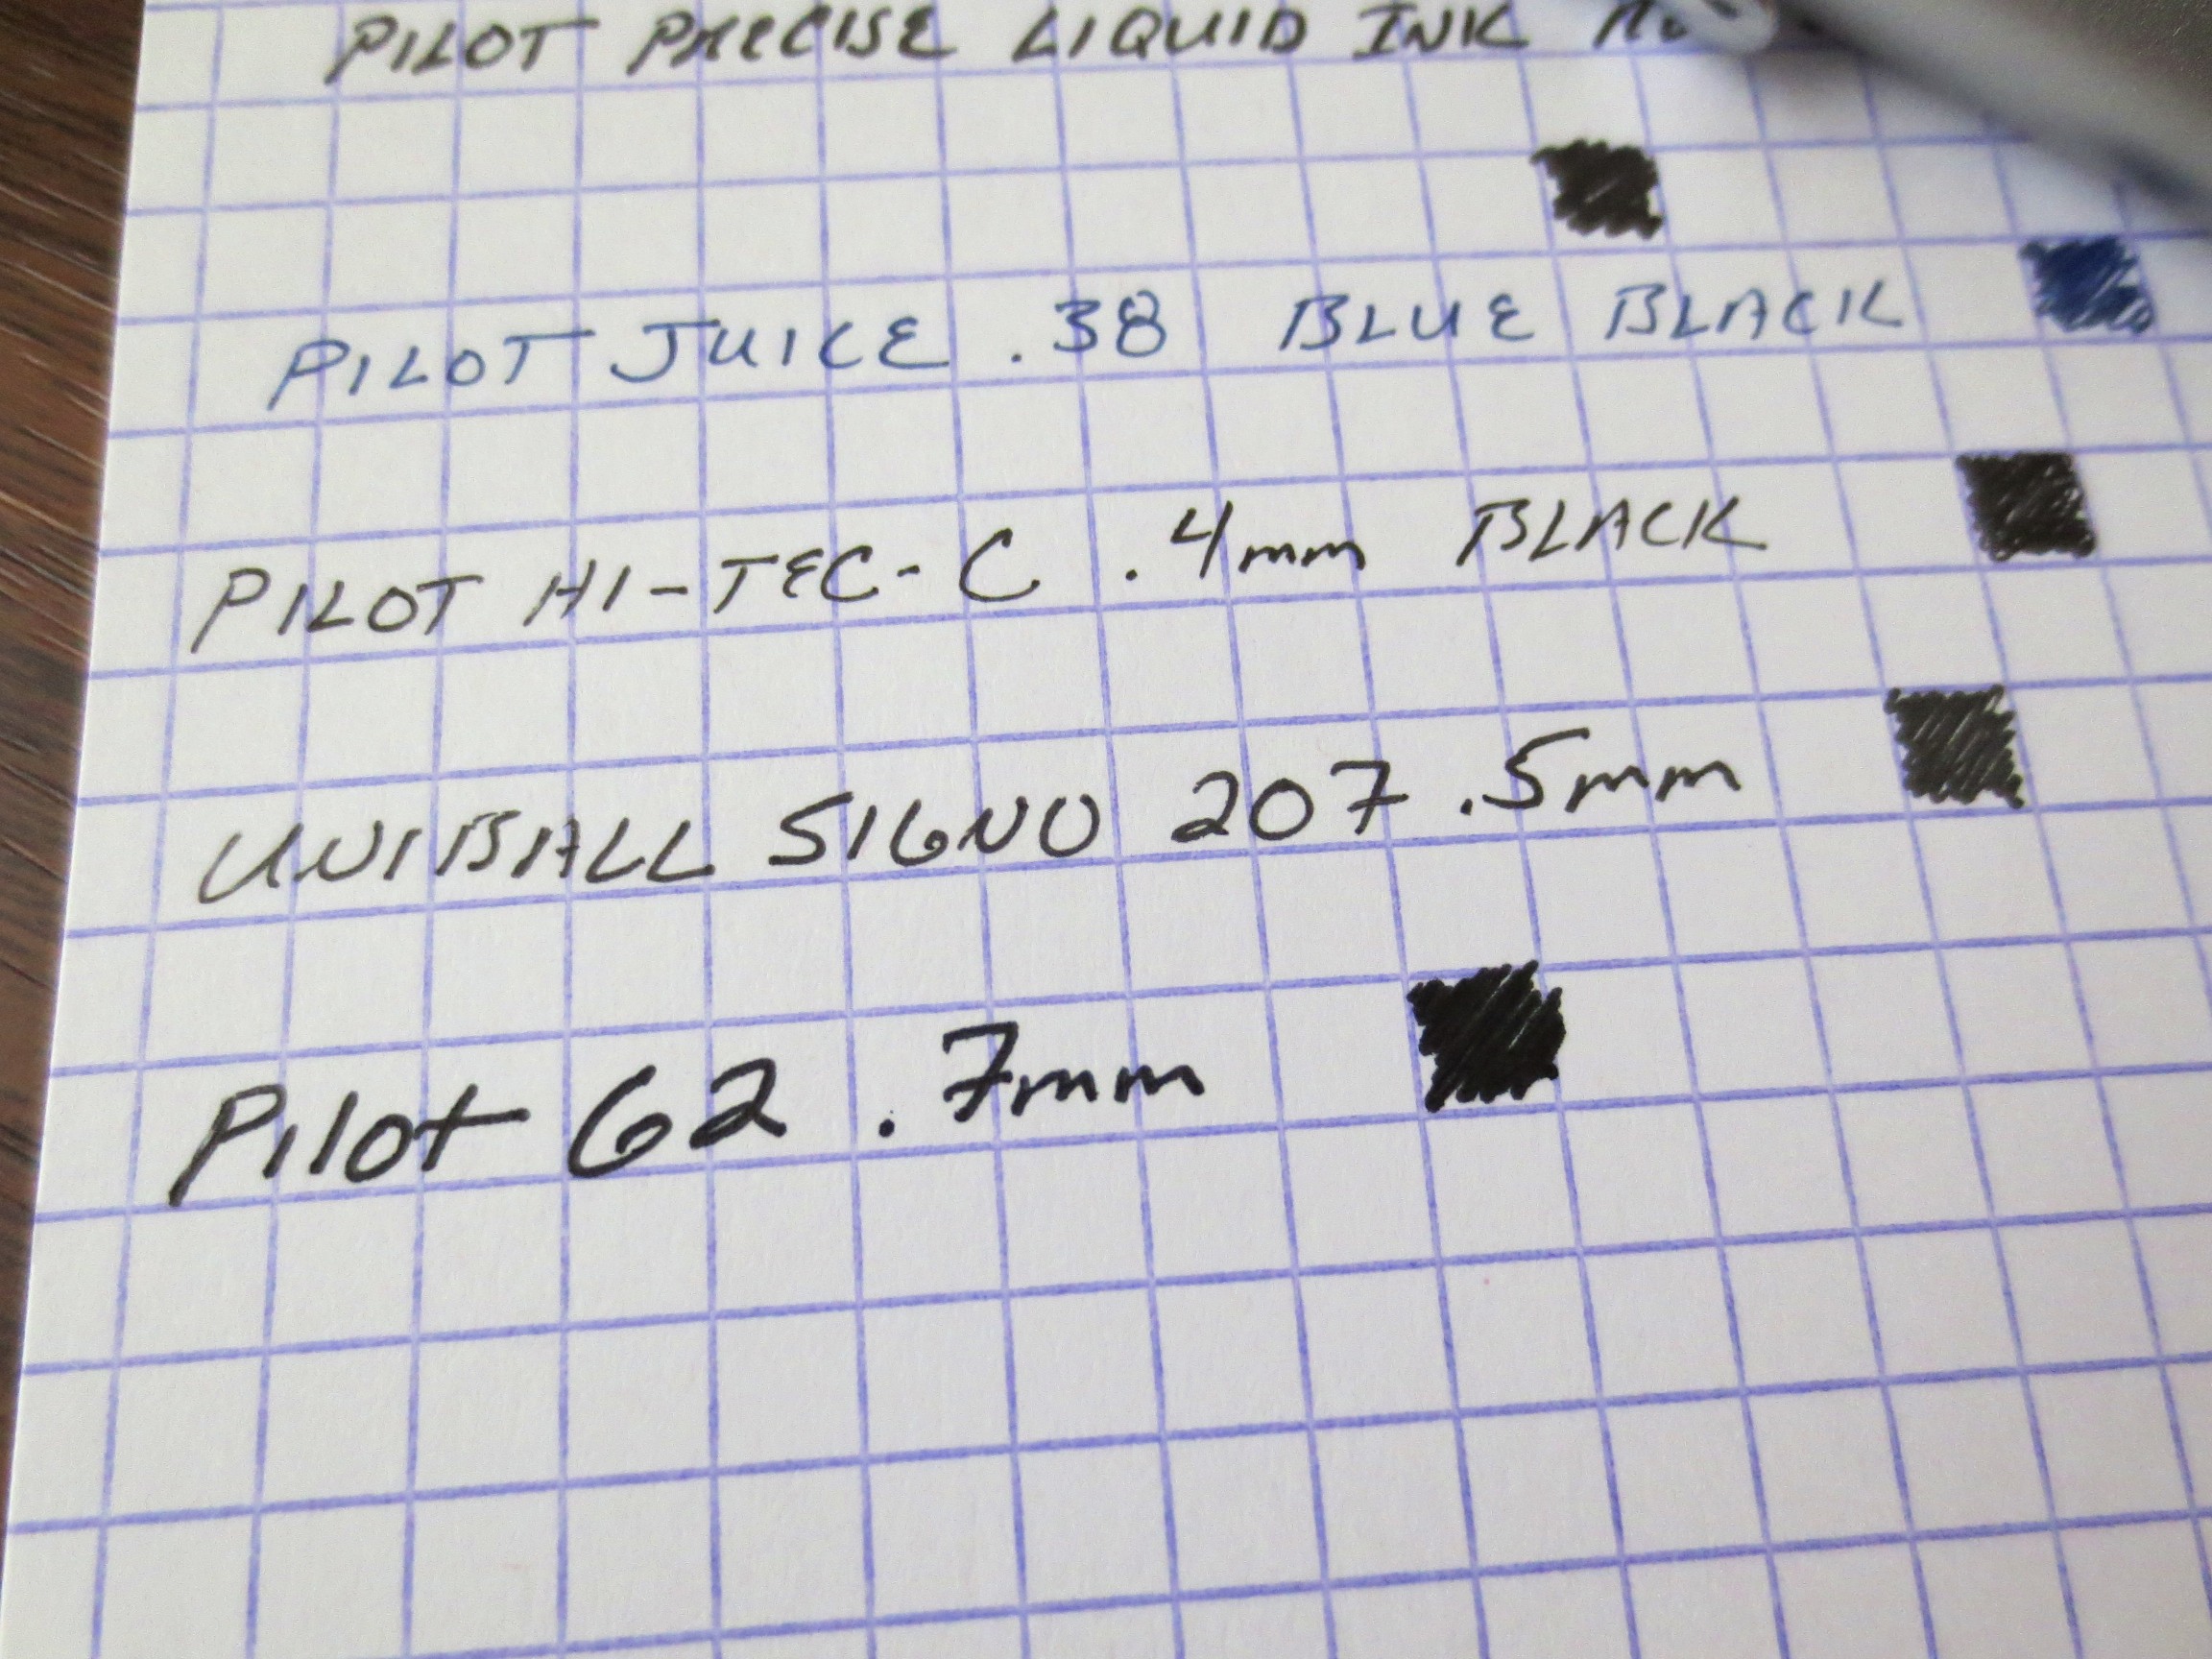 PILOT PRECISE LIQUID INK
PILOT JUICE .38 BLUE BLACK
PILOT HI-TEC-C .4mm BLACK
UNIBALL SIGNO 207 .5mm
Pilot G2 .7mm